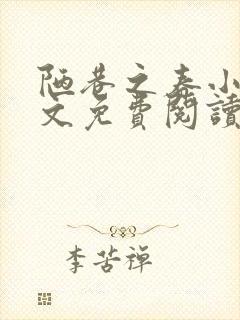 陋巷之春小
文免費閱讀
李苦禪